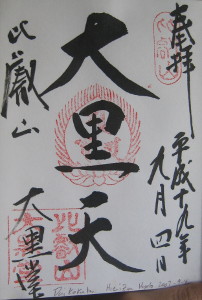 奉拝
平成十九年
九月四日
大黒天
比叡山
大黒堂
Kyoto 2007